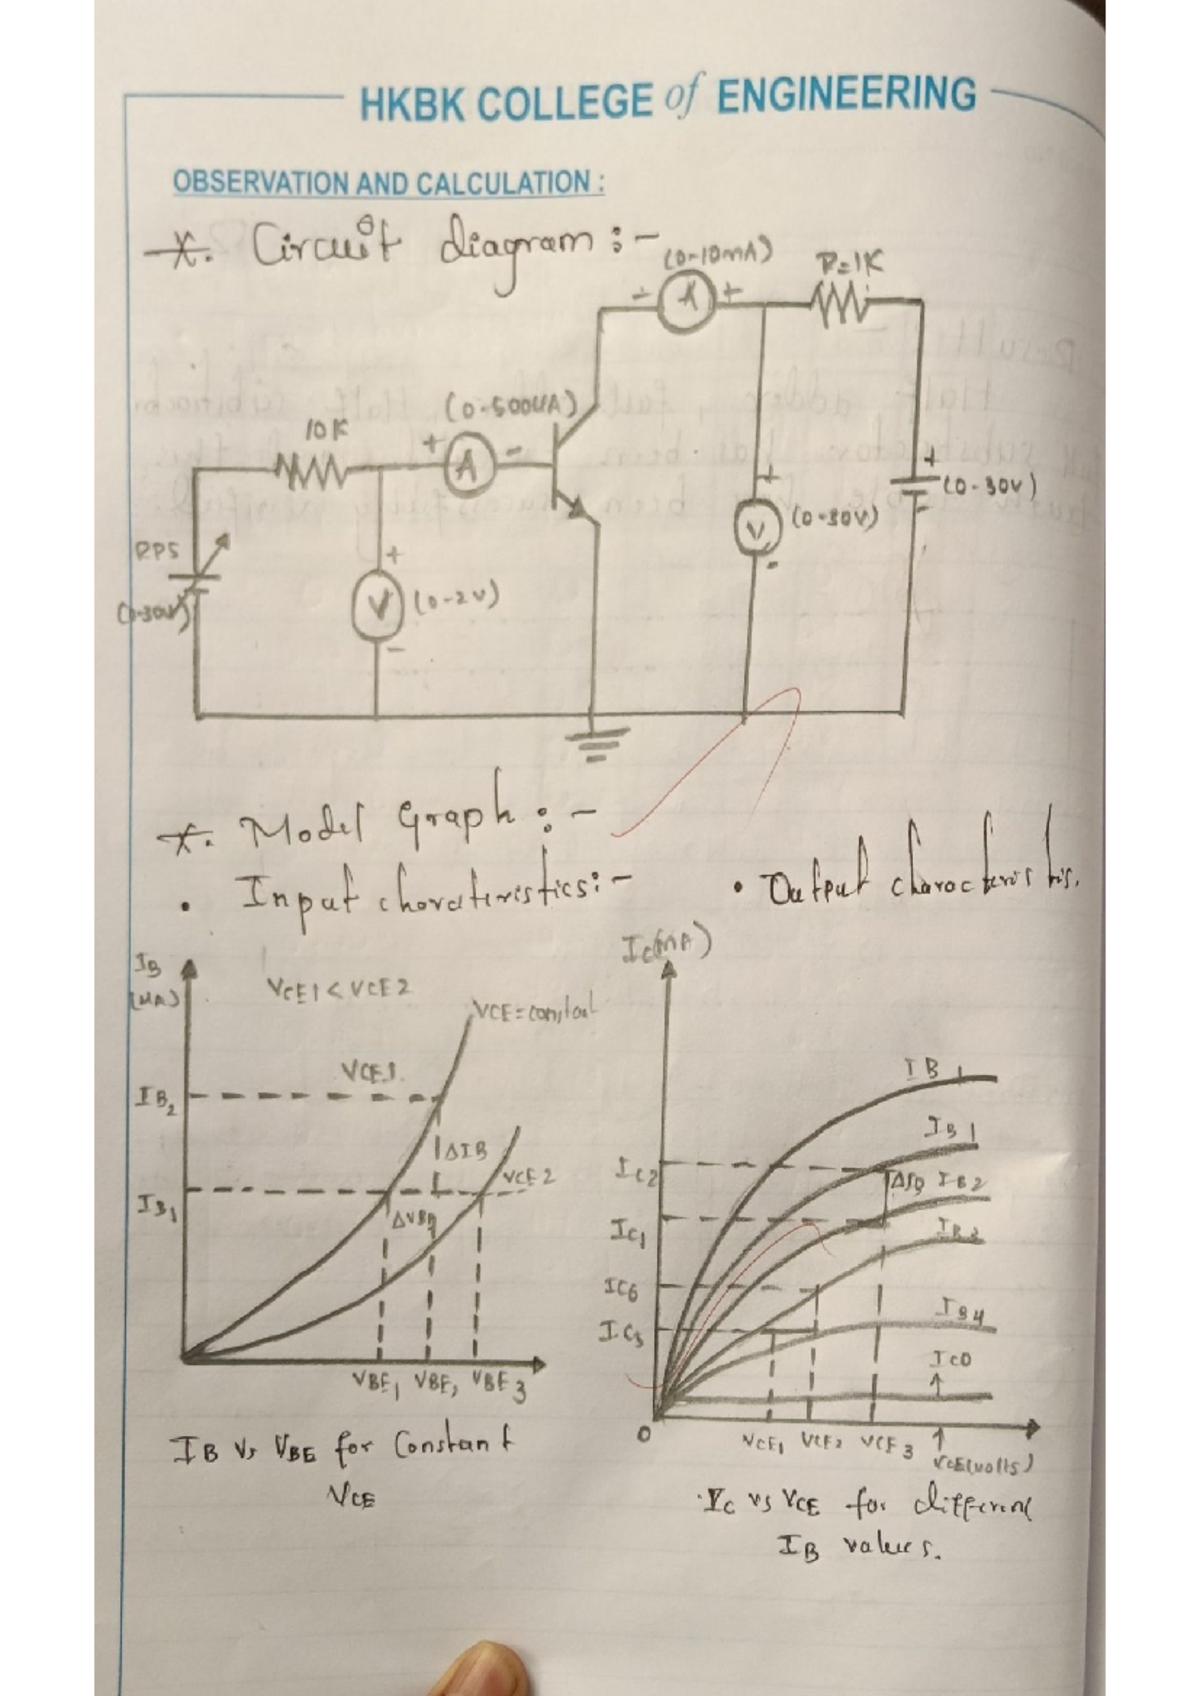 HKBK COLLEGE of ENGINEERING
OBSERVATION AND CALCULATION :
*. Circuit diagram :-
(0-10mA)
R=1K
- A +
(0-500UA)
10K
+ A -
+
(0-30V)
-
+
V (0-30V)
-
RPS
(0-30V)
+
V (0-2V)
-
*. Model Graph :-
• Input charateristics:-
• Output
IB
(UA)
VCE1 < VCE2
VCE = constant
VCE1.
IB2
ΔIB
VCE2
IB1
VBE1 VBE2 VBE3
IB Vs VBE for Constant
VCE
IC(mA)
IB1
IB1
IC2
IB2
IC1
IC6
IB4
IC5
ICO
O
VCE1 VCE2 VCE3
VCE(volts)
IC vs VCE for different
IB values.